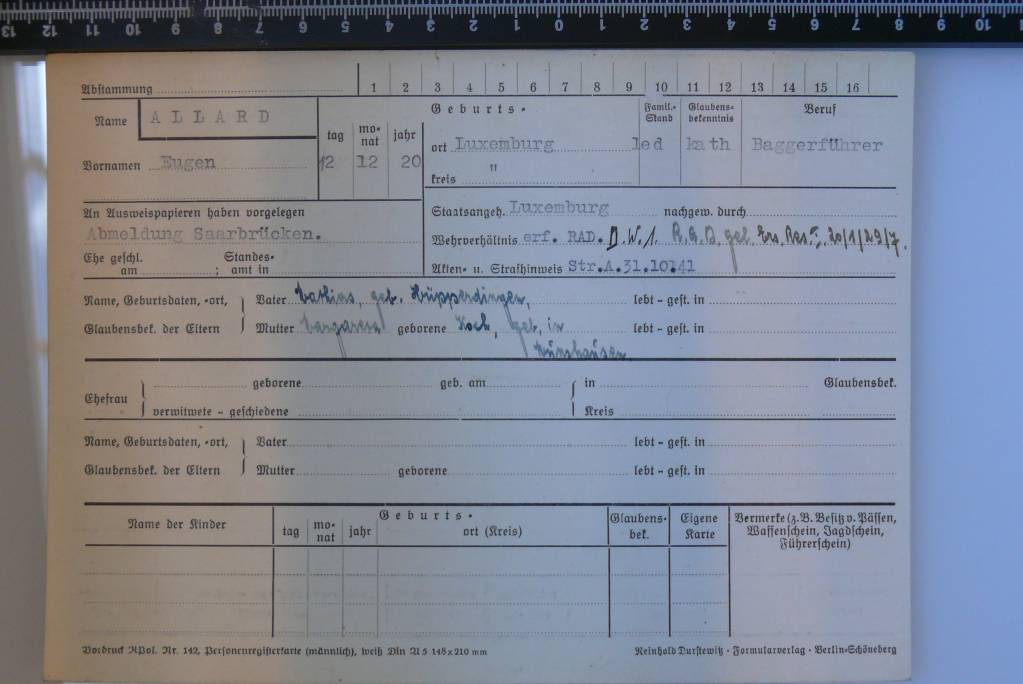 13 12 11 10 9 8 7 6 5 4 3 2 1 0 1 2 3 4 5 6 7 8 9 10
Abstammung 1 2 3 4 5 6 7 8 9 10 11 12 13 14 15 16
Name ALLARD
Vornamen Eugen
tag monat jahr
12 12 20
Geburts-
ort Luxemburg
kreis "
Famil.-Stand
led
Glaubens-bekenntnis
kath
Beruf
Baggerführer
An Ausweispapieren haben vorgelegen
Abmeldung Saarbrücken.
Ehe geschl. am ; Standes-amt in
Staatsangeh. Luxemburg nachgew. durch
Wehrverhältnis erf. RAD. D.W.1. R.A.D. Ers. Res. I. 20/1/29/7.
Akten- u. Strafhinweis Str.A.31.10.41
Name, Geburtsdaten, -ort, Vater Mathias, geb. lebt - gest. in
Glaubensbek. der Eltern Mutter Margareta geborene Koch, geb. in lebt - gest. in
Münshausen
Ehefrau geborene geb. am in Glaubensbek.
verwitwete - geschiedene Kreis
Name, Geburtsdaten, -ort, Vater lebt - gest. in
Glaubensbek. der Eltern Mutter geborene lebt - gest. in
Name der Kinder
Geburts-
tag mo-nat jahr ort (Kreis)
Glaubens-bek.
Eigene Karte
Vermerke (z. B. Besitz v. Pässen,
Waffenschein, Jagdschein,
Führerschein)
Vordruck RPol. Nr. 142, Personenregisterkarte (männlich), weiß Din A 5 148 x 210 mm
Reinhold Durstewitz · Formularverlag · Berlin-Schöneberg